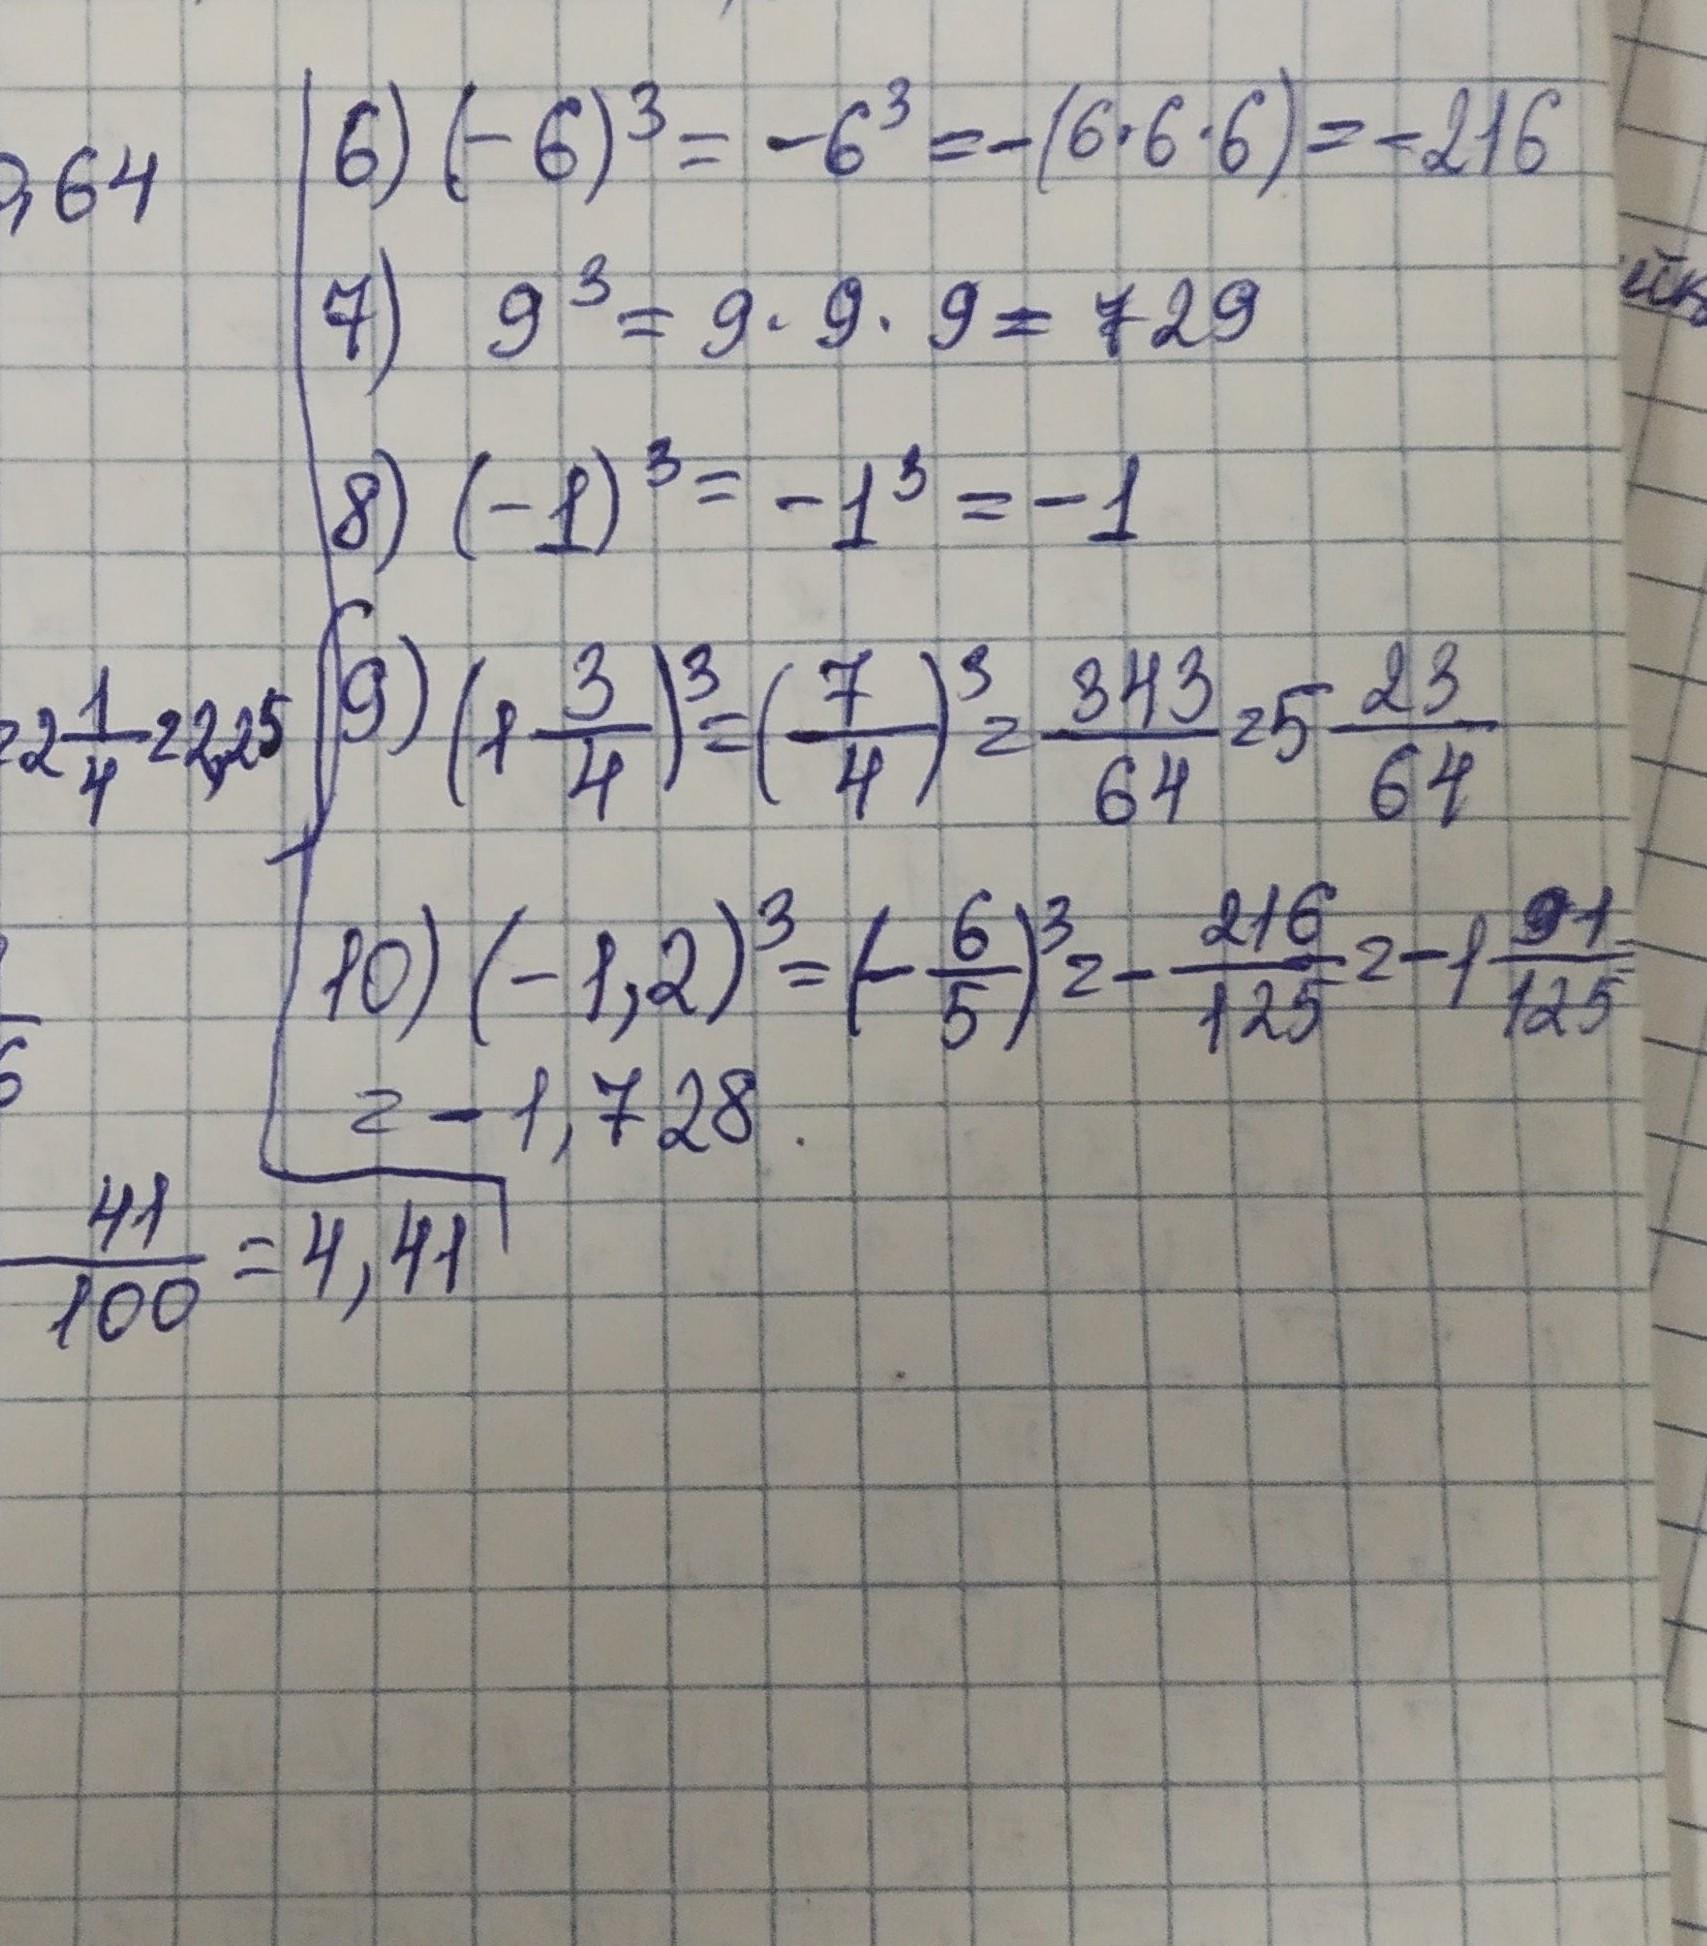 ,64
6) (-6)³ = -6³ = -(6·6·6) = -216
7) 9³ = 9·9·9 = 729
8) (-1)³ = -1³ = -1
= 2 1/4 = 2,25
9) (1 3/4)³ = (7/4)³ = 343/64 = 5 23/64
10) (-1,2)³ = (-6/5)³ = -216/125 = -1 91/125 =
= -1,728.
41/100 = 4,41